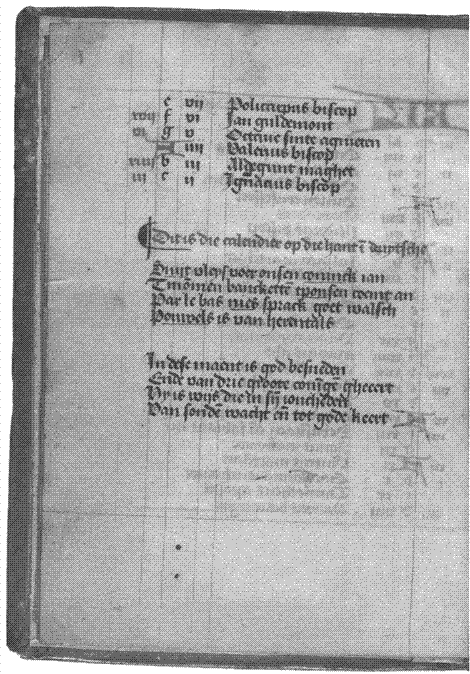 e vii Policarpus biscop
xvii f vi Jan guldemont
vi g v Octave sinte agneeten
A iiii Valerius biscop
xiiii b iii Aldegunt maghet
iii c ii Ignacius biscop
Dit is die calendier op die hant ī duytsche
Snijt vleys voer onsen coninck ian
Tmomen banckettē tponsen coemt an
Par le bas mes sprack goet walsch
Pouwels is van herentals
In dese maent is god besneden
Ende van drie groote conīge gheeert
Hy is wijs die in sij ioncheden
Van sondē wacht en̄ tot gode keert